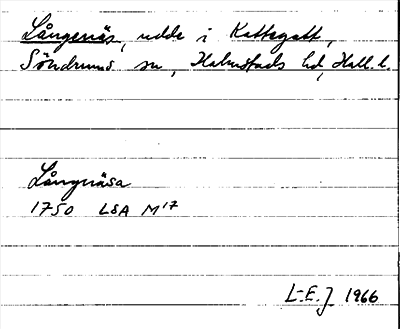 Långenäs, udde i Kattegatt,
Söndrums sn, Halmstads hd, Hall. l.
Långnäsa
1750 LSA M17
L-E.J 1966